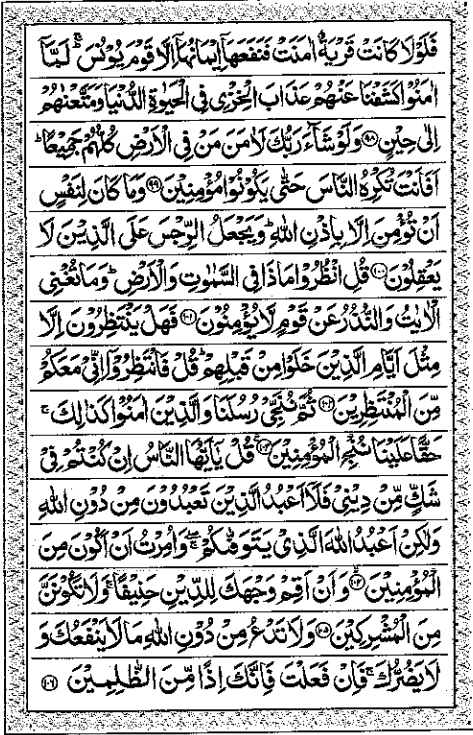 فَلَوْلَا كَانَتْ قَرْيَةٌ اٰمَنَتْ فَنَفَعَهَاۤ اِيْمَانُهَاۤ اِلَّا قَوْمَ يُوْنُسَ ؕ لَمَّاۤ
اٰمَنُوْا كَشَفْنَا عَنْهُمْ عَذَابَ الْخِزْيِ فِى الْحَيٰوةِ الدُّنْيَا وَمَتَّعْنٰهُمْ
اِلٰى حِيْنٍ ۝۹۸ وَلَوْ شَآءَ رَبُّكَ لَاٰمَنَ مَنْ فِى الْاَرْضِ كُلُّهُمْ جَمِيْعًا ؕ
اَفَاَنْتَ تُكْرِهُ النَّاسَ حَتّٰى يَكُوْنُوْا مُؤْمِنِيْنَ ۝۹۹ وَمَا كَانَ لِنَفْسٍ
اَنْ تُؤْمِنَ اِلَّا بِاِذْنِ اللّٰهِ ؕ وَيَجْعَلُ الرِّجْسَ عَلَى الَّذِيْنَ لَا
يَعْقِلُوْنَ ۝۱۰۰ قُلِ انْظُرُوْا مَاذَا فِى السَّمٰوٰتِ وَالْاَرْضِ ؕ وَمَا تُغْنِى
الْاٰيٰتُ وَالنُّذُرُ عَنْ قَوْمٍ لَّا يُؤْمِنُوْنَ ۝۱۰۱ فَهَلْ يَنْتَظِرُوْنَ اِلَّا
مِثْلَ اَيَّامِ الَّذِيْنَ خَلَوْا مِنْ قَبْلِهِمْ ؕ قُلْ فَانْتَظِرُوْۤا اِنِّىْ مَعَكُمْ
مِّنَ الْمُنْتَظِرِيْنَ ۝۱۰۲ ثُمَّ نُنَجِّىْ رُسُلَنَا وَالَّذِيْنَ اٰمَنُوْا كَذٰلِكَ ۚ
حَقًّا عَلَيْنَا نُنْجِ الْمُؤْمِنِيْنَ ۝۱۰۳ قُلْ يٰۤاَيُّهَا النَّاسُ اِنْ كُنْتُمْ فِىْ
شَكٍّ مِّنْ دِيْنِىْ فَلَاۤ اَعْبُدُ الَّذِيْنَ تَعْبُدُوْنَ مِنْ دُوْنِ اللّٰهِ
وَلٰكِنْ اَعْبُدُ اللّٰهَ الَّذِىْ يَتَوَفّٰىكُمْ ۖ وَاُمِرْتُ اَنْ اَكُوْنَ مِنَ
الْمُؤْمِنِيْنَ ۝۱۰۴ وَاَنْ اَقِمْ وَجْهَكَ لِلدِّيْنِ حَنِيْفًا ۚ وَلَا تَكُوْنَنَّ
مِنَ الْمُشْرِكِيْنَ ۝۱۰۵ وَلَا تَدْعُ مِنْ دُوْنِ اللّٰهِ مَا لَا يَنْفَعُكَ وَ
لَا يَضُرُّكَ ۚ فَاِنْ فَعَلْتَ فَاِنَّكَ اِذًا مِّنَ الظّٰلِمِيْنَ ۝۱۰۶